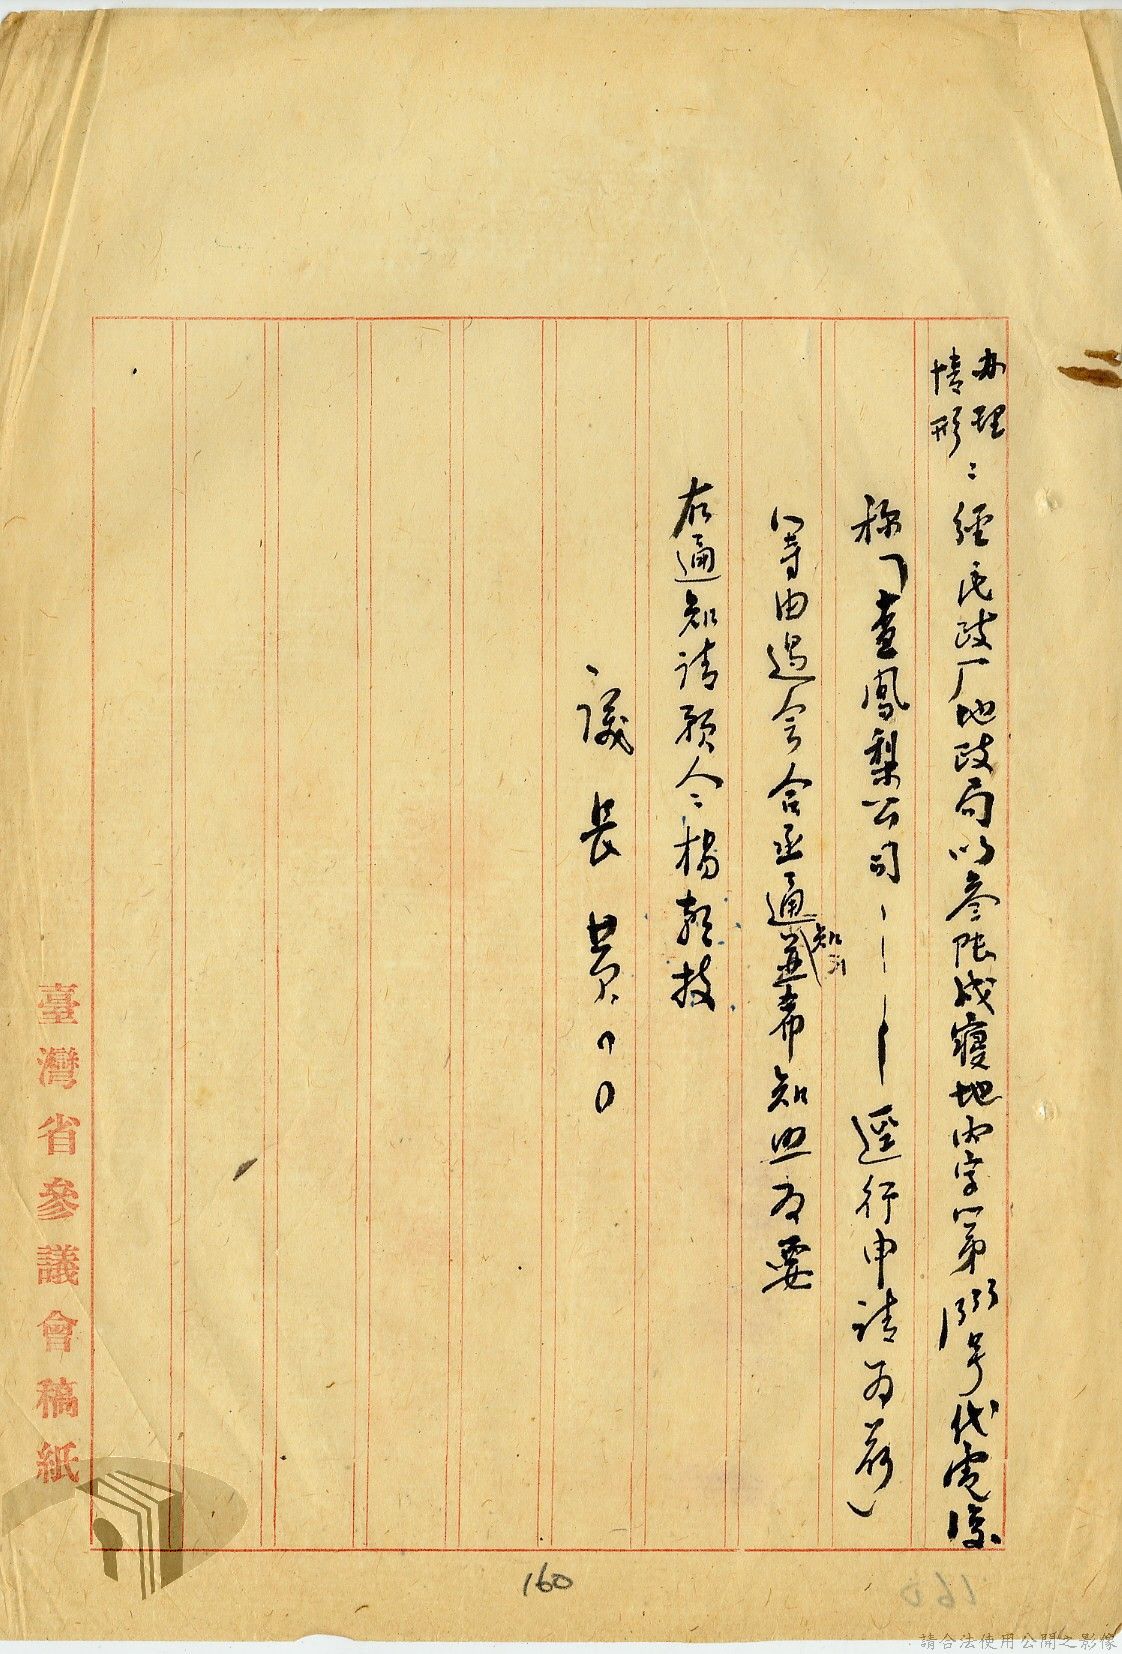 办理
情形：經民政厂地政局以叁陸戌寢地丙字第1333号代電復
称「查鳳梨公司———逕行申請為荷」
等由過會合函通知並希知照為要
右通知請願人：楊
議長黃〇〇
臺灣省參議會稿紙
160
請合法使用公開之影像